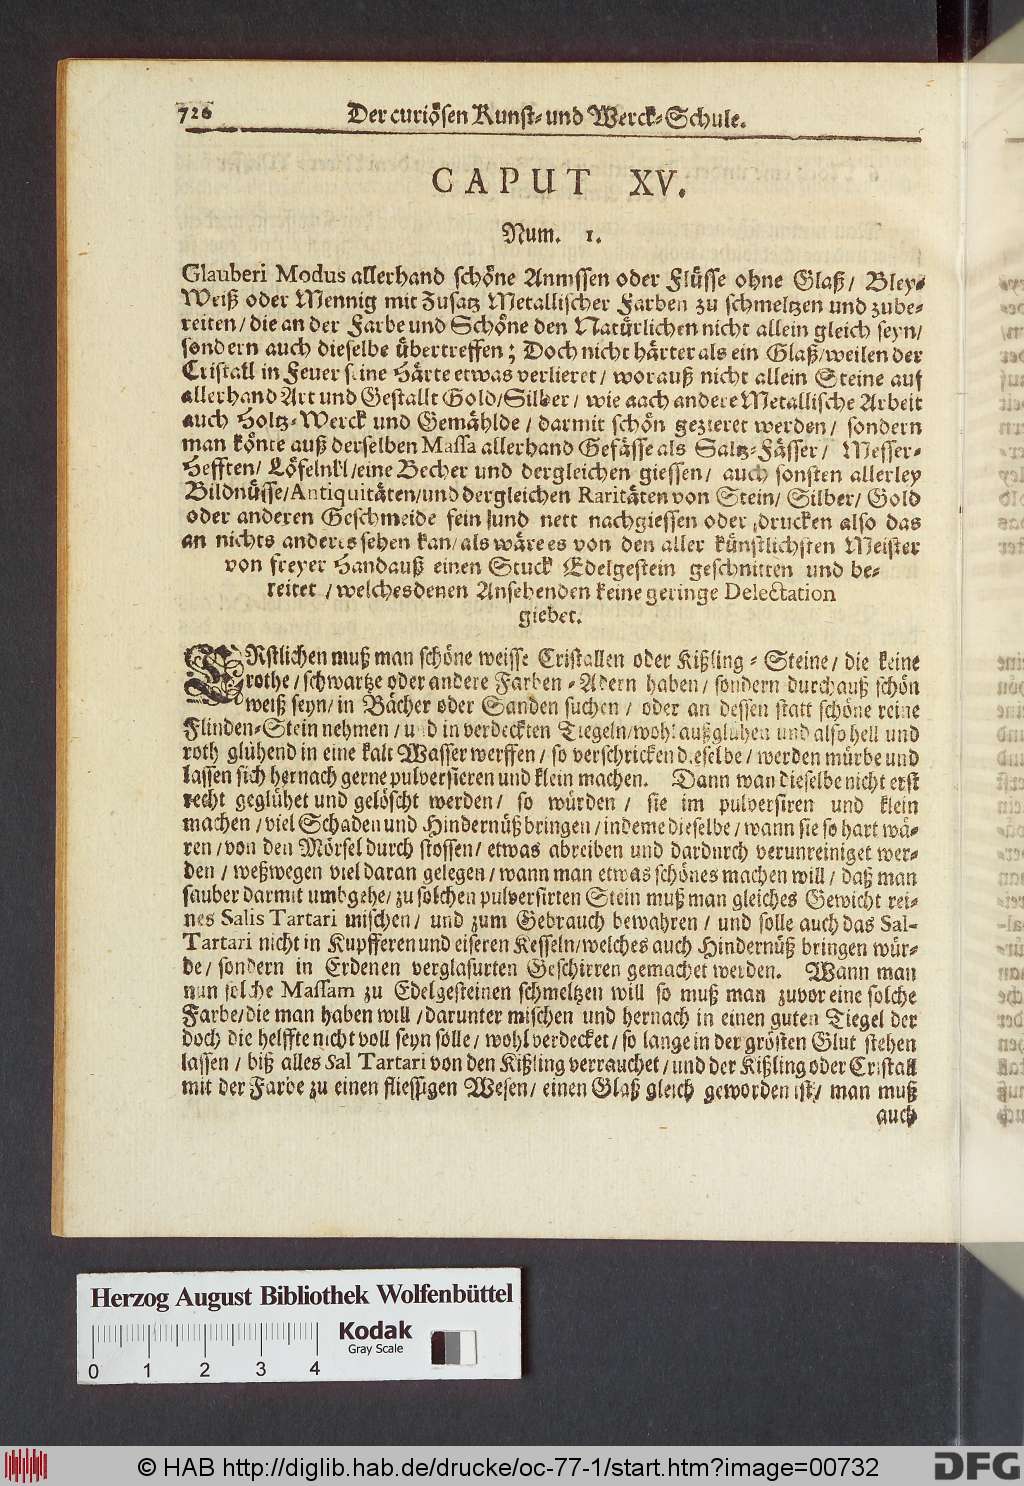 726 Der curiösen Kunst- und Werck-Schule.
CAPUT XV.
Num. 1.
Glauberi Modus allerhand schöne Amussen oder Flüsse ohne Glaß / Bley-
Weiß oder Mennig mit Zusatz Metallischer Farben zu schmeltzen und zube-
reiten / die an der Farbe und Schöne den Natürlichen nicht allein gleich seyn /
sondern auch dieselbe übertreffen; Doch nicht härter als ein Glaß / weilen der
Cristall in Feuer seine Härte etwas verlieret / worauß nicht allein Steine auf
allerhand Art und Gestallt Gold / Silber / wie aach andere Metallische Arbeit
auch Holtz-Werck und Gemählde / darmit schön gezieret werden / sondern
man könte auß derselben Massa allerhand Gefässe als Saltz-Fässer / Messer-
Hefften / Löfelnkl / eine Becher und dergleichen giessen / auch sonsten allerley
Bildnüsse / Antiquitäten / und dergleichen Raritäten von Stein / Silber / Gold
oder anderen Geschmeide fein und nett nachgiessen oder drucken also das
an nichts anders sehen kan / als wäre es von den aller künstlichsten Meister
von freyer Hand auß einen Stuck Edelgestein geschnitten und be-
reitet / welches denen Ansehenden keine geringe Delectation
giebet.
ERstlichen muß man schöne weisse Cristallen oder Kißling-Steine / die keine
rothe / schwartze oder andere Farben-Adern haben / sondern durchauß schön
weiß seyn / in Bächer oder Sanden suchen / oder an dessen statt schöne reine
Flinden-Stein nehmen / und in verdeckten Tiegeln / wohl außglühen und also hell und
roth glühend in eine kalt Wasser werffen / so verschricken dieselbe / werden mürbe und
lassen sich hernach gerne pulversieren und klein machen. Dann wan dieselbe nicht erst
recht geglühet und gelöscht werden / so würden / sie im pulversiren und klein
machen / viel Schaden und Hindernüß bringen / indeme dieselbe / wann sie so hart wä-
ren / von den Mörsel durch stossen / etwas abreiben und dardurch verunreiniget wer-
den / weßwegen viel daran gelegen / wann man etwas schönes machen will / daß man
sauber darmit umbgehe / zu solchen pulversirten Stein muß man gleiches Gewicht rei-
nes Salis Tartari mischen / und zum Gebrauch bewahren / und solle auch das Sal-
Tartari nicht in Kupfferen und eiseren Kesseln / welches auch Hindernüß bringen wür-
de / sondern in Erdenen verglasurten Geschirren gemachet werden. Wann man
nun solche Massam zu Edelgesteinen schmeltzen will so muß man zuvor eine solche
Farbe / die man haben will / darunter mischen und hernach in einen guten Tiegel der
doch die helffte nicht voll seyn solle / wohl verdecket / so lange in der grösten Glut stehen
lassen / biß alles Sal Tartari von den Kißling verrauchet / und der Kißling oder Cristall
mit der Farbe zu einen fliessigen Wesen / einen Glaß gleich geworden ist / man muß
auch
Herzog August Bibliothek Wolfenbüttel
Kodak
Gray Scale
0 1 2 3 4
© HAB http://diglib.hab.de/drucke/oc-77-1/start.htm?image=00732
DFG